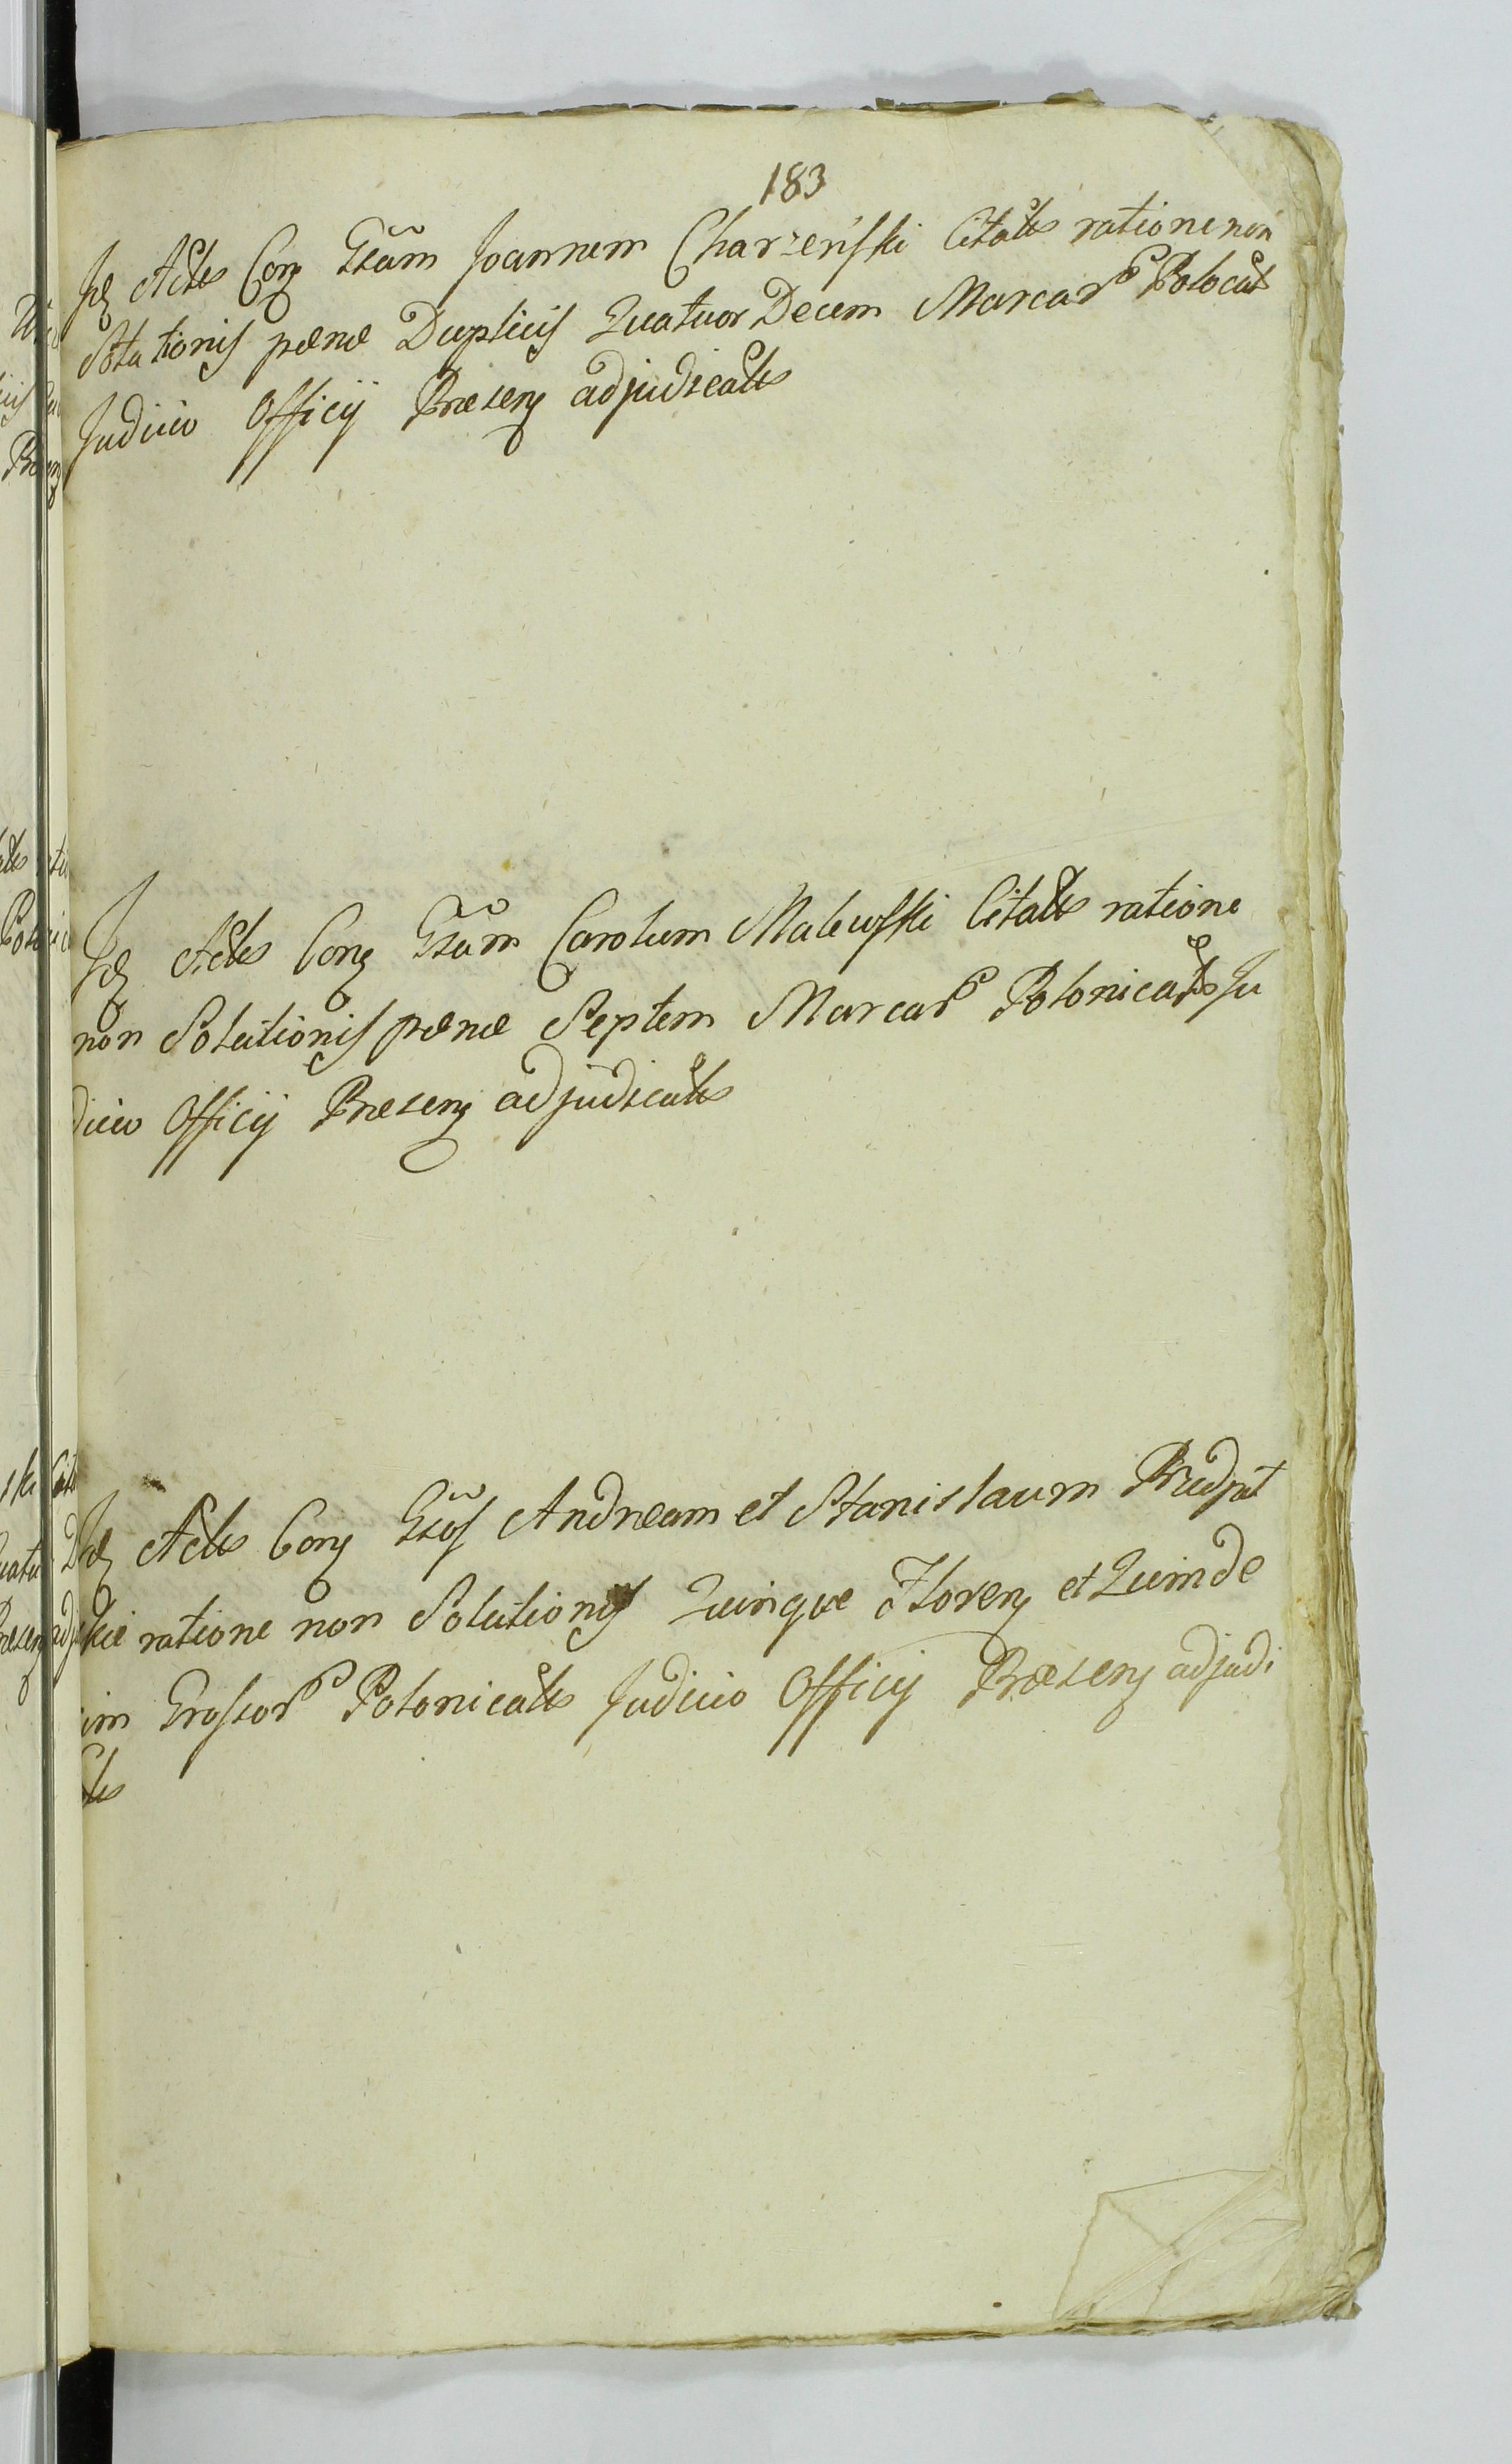 183
Id Actts Con Gsum Joannem Charzeński Citatts ratione non
Solutionis pœnæ Duplicis Quatuor Decem Marcar Polocat
Judicio Officÿ Præsen adjudicatts
Id Actts Con Gsum Carolum Malewski Citatts ratione
non Solutionis pœnæ Septem Marcar Polonicatts Ju
dicio Officÿ Præsen adjudicatts
Id Actts Con Gsos Andream et Stanislaum
ratione non Solutionis Quinque Floren et Quinde
cim Grossor Polonicatts Judicio Officÿ Præsen adjudi